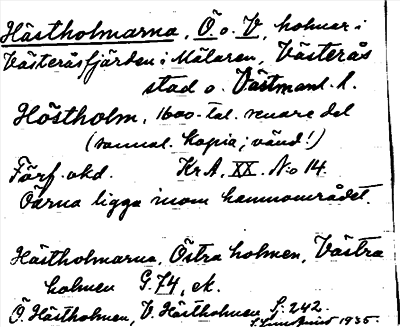 Hästholmarna, Ö o. V, holmar i
Västeråsfjärden i Mälaren, Västerås
stad o. Västmanl. l.
Höstholm, 1600-tal. senare del
(samml. Kopia; vänd!)
Förf. okd. Kr.A. XX. No 14.
Öarna ligga inom hamnområdet.
Hästholmarna, Östra holmen, Västra
holmen G.74, ek.
Ö. Hästholmen, V. Hästholmen S. 242
1935.